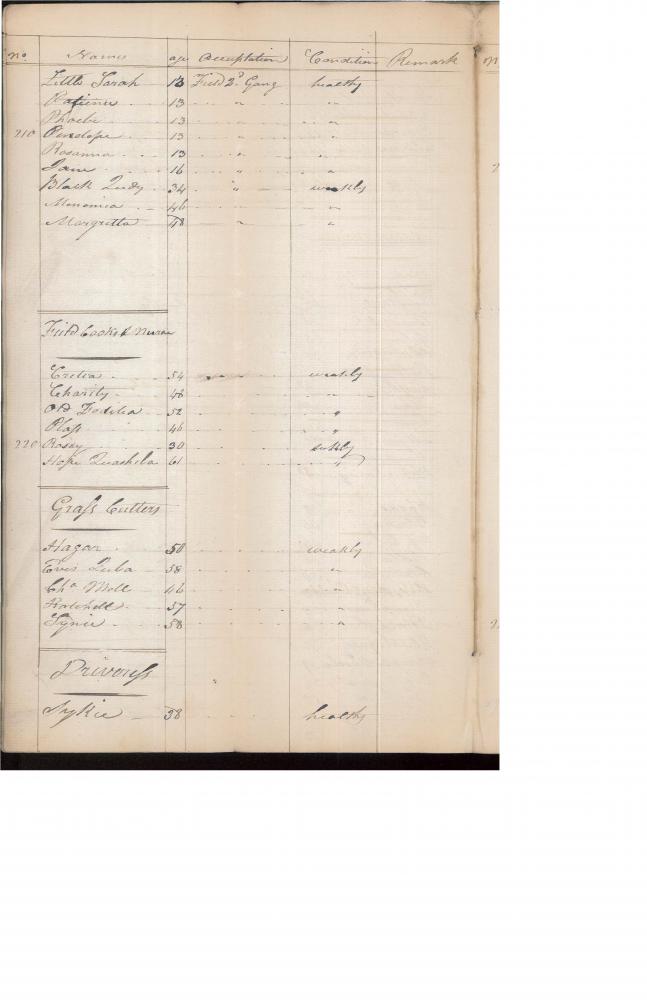 No. Names age Occupation Condition Remark
Little Sarah 13 Field 2d. Gang healthy
Patience 13 " "
Phoebe 13 " "
210 Penelope 13 " "
Rosanna 13 " "
Jane 16 " "
Black Judy 34 " weakly
Monimia 46 " "
Margretta 48 " "
Field Cooks & Nurse
Cretia 54 weakly
Charity 48 "
Old 52 "
46 "
220 Rosey 30 sickly
Hope Quasheba 61 "
Grass Cutters
Hagar 50 weakly
Eves Juba 58 "
Cha. Moll 46 "
57 "
58 "
Driveress
Sykie 38 healthy